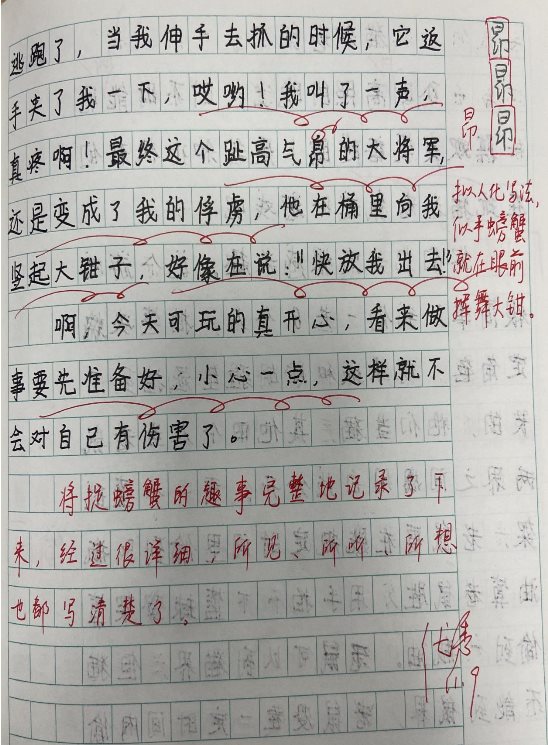 逃跑了，当我伸手去抓的时候，它返
手夹了我一下，哎哟！我叫了一声，
真疼啊！最终这个趾高气昂的大将军，
还是变成了我的俘虏，他在桶里向我
竖起大钳子，好像在说："快放我出去！"
啊，今天可玩的真开心，看来做
事要先准备好，小心一点，这样就不
会对自己有伤害了。
将捉螃蟹的趣事完整地记录了下
来，经过很详细，所见、所听、所想
也都写清楚了。
昂
昂
昂
昂
拟人化写法，
似乎螃蟹
就在眼前
挥舞大钳。
优秀
11.9